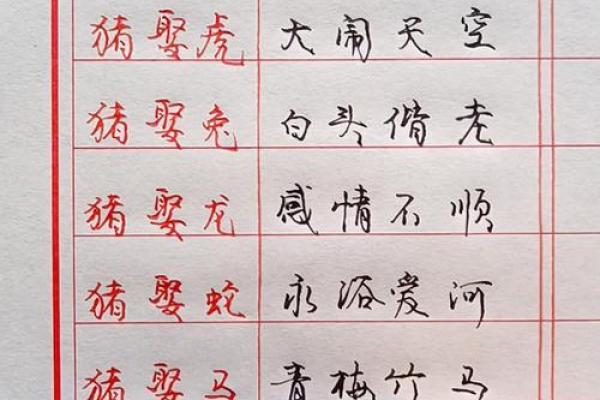 猪娶虎 大闹天空
猪娶兔 白头偕老
猪娶龙 感情不顺
猪娶蛇 永浴爱河
猪娶马 青梅竹马